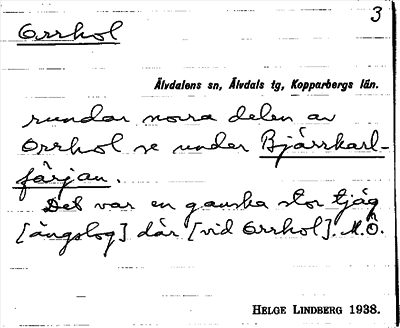 3
Orrhol
Älvdalens sn, Älvdals tg, Kopparbergs län.
rundar norra delen av
Orrhol se under Bjärrkarl-
färjan.
Det var en ganska stor tjäg
[ängslog] där [vid Orrhol]. M.Ö.
HELGE LINDBERG 1938.